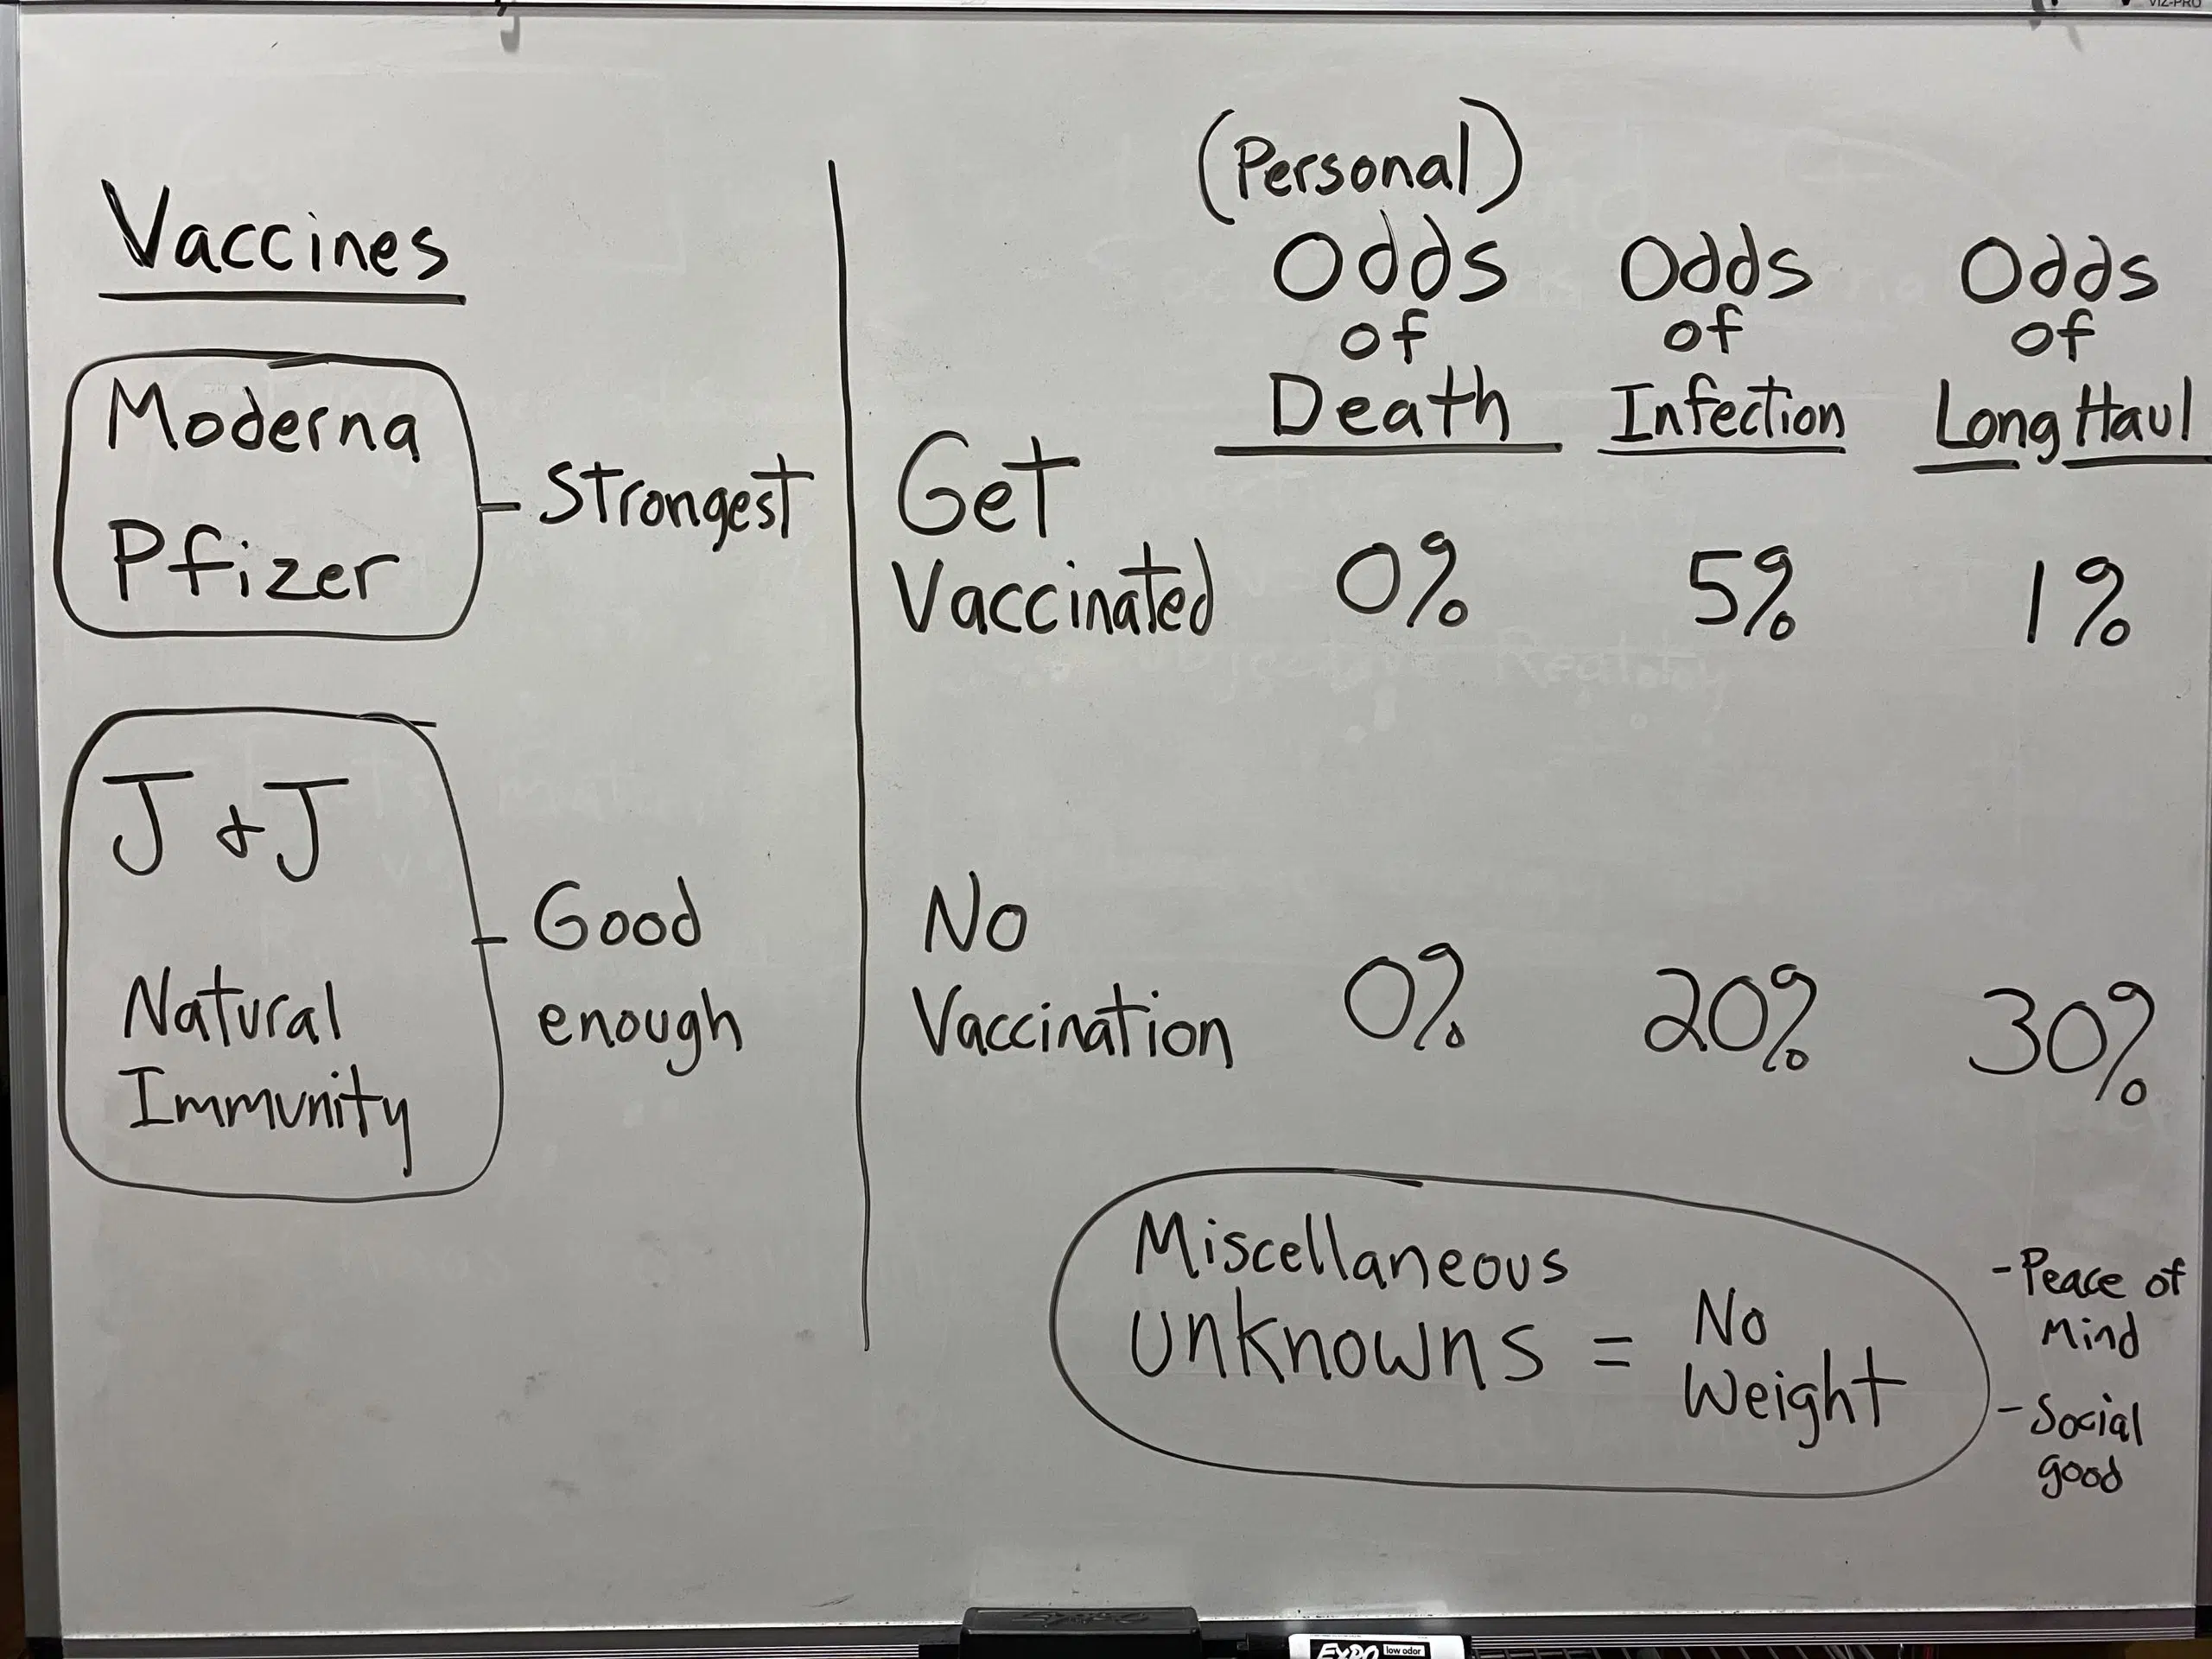 VIZ-PRO
Vaccines
Moderna
Pfizer
Strongest
J & J
Natural
Immunity
Good
enough
(Personal)
Odds
of
Death
Odds
of
Infection
Odds
of
Long Haul
Get
Vaccinated
0%
5%
1%
No
Vaccination
0%
20%
30%
Miscellaneous
unknowns = No
Weight
- Peace of
Mind
- Social
good
EXPO low odor